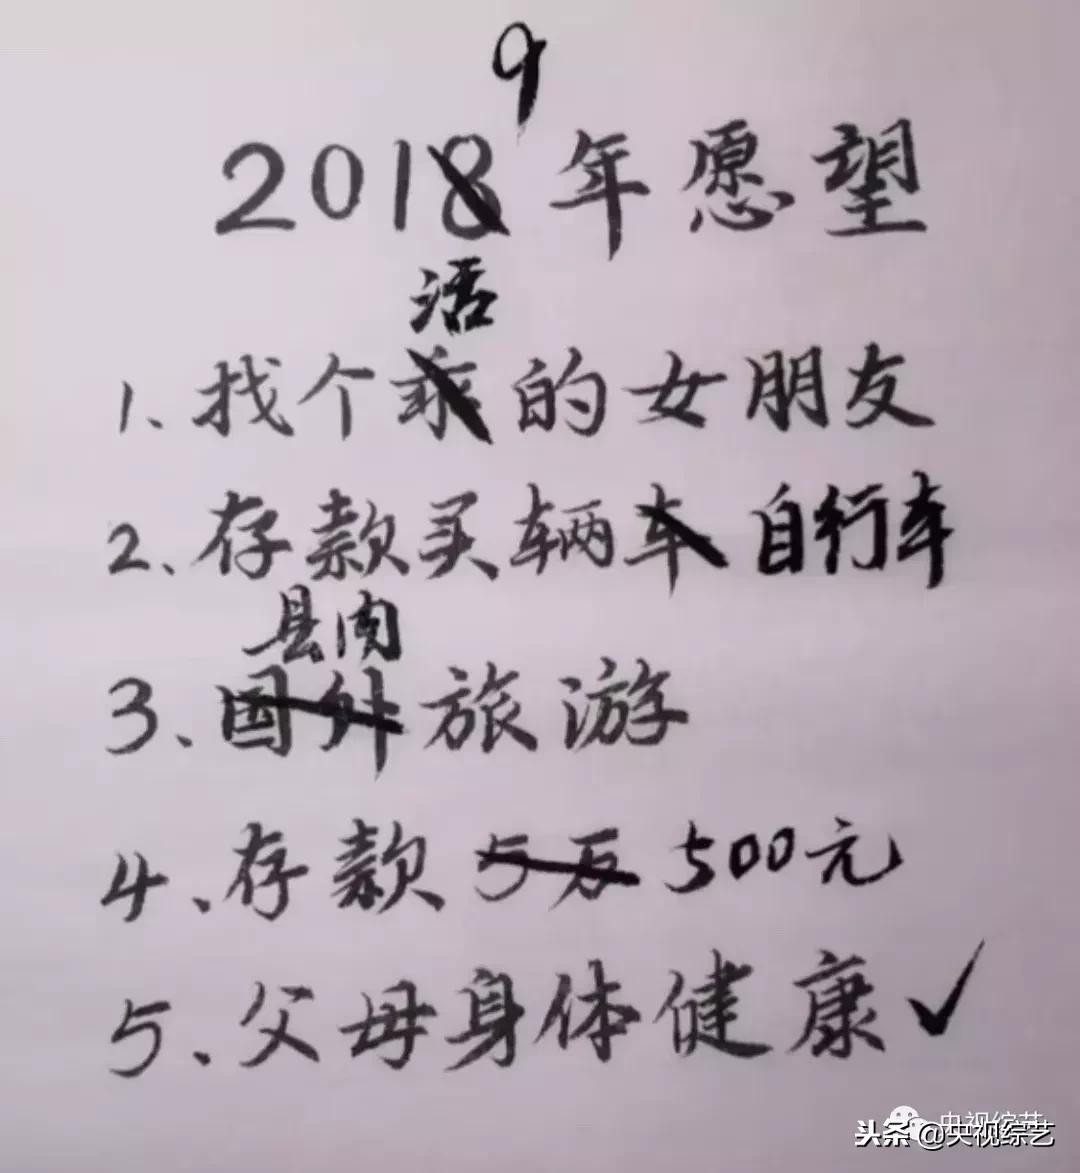 9
2018年愿望
活
1、找个乖的女朋友
2、存款买辆车 自行车
县内
3、国外旅游
4、存款5万 500元
5、父母身体健康✓
央视综艺
头条@央视综艺